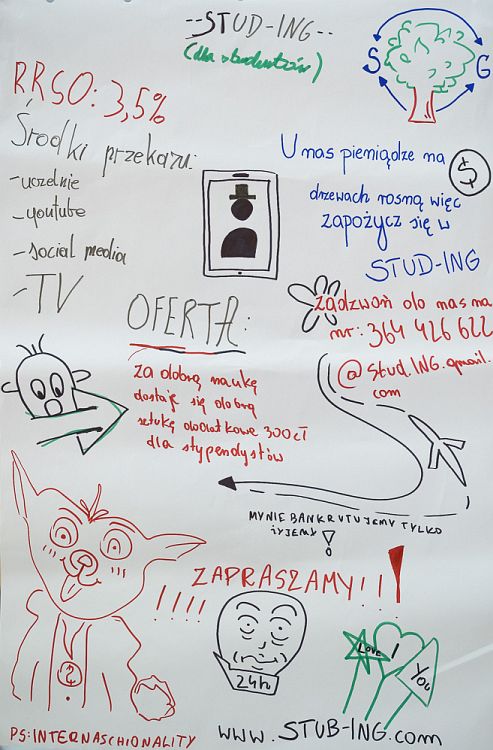 --STUD-ING--
(dla studentów)
S G
RRSO: 3,5%
Środki przekazu:
- uczelnie
- youtube
- social media
- TV
U nas pieniądze na
$
drzewach rosną więc
zapożycz się w
STUD-ING
zadzwoń do nas na
nr: 364 426 622
@stud.ING.gmail.
com
OFERTA:
za dobrą naukę
dostaje się dobrą
sztukę dodatkowe 300zł
dla stypendystów
MY NIE BANKRUTUJEMY TYLKO
ŻYJEMY!
ZAPRASZAMY!!!
!!!!
24h
LOVE
!
YOU
PS: INTERNASCHIONALITY
WWW.STUB-ING.com